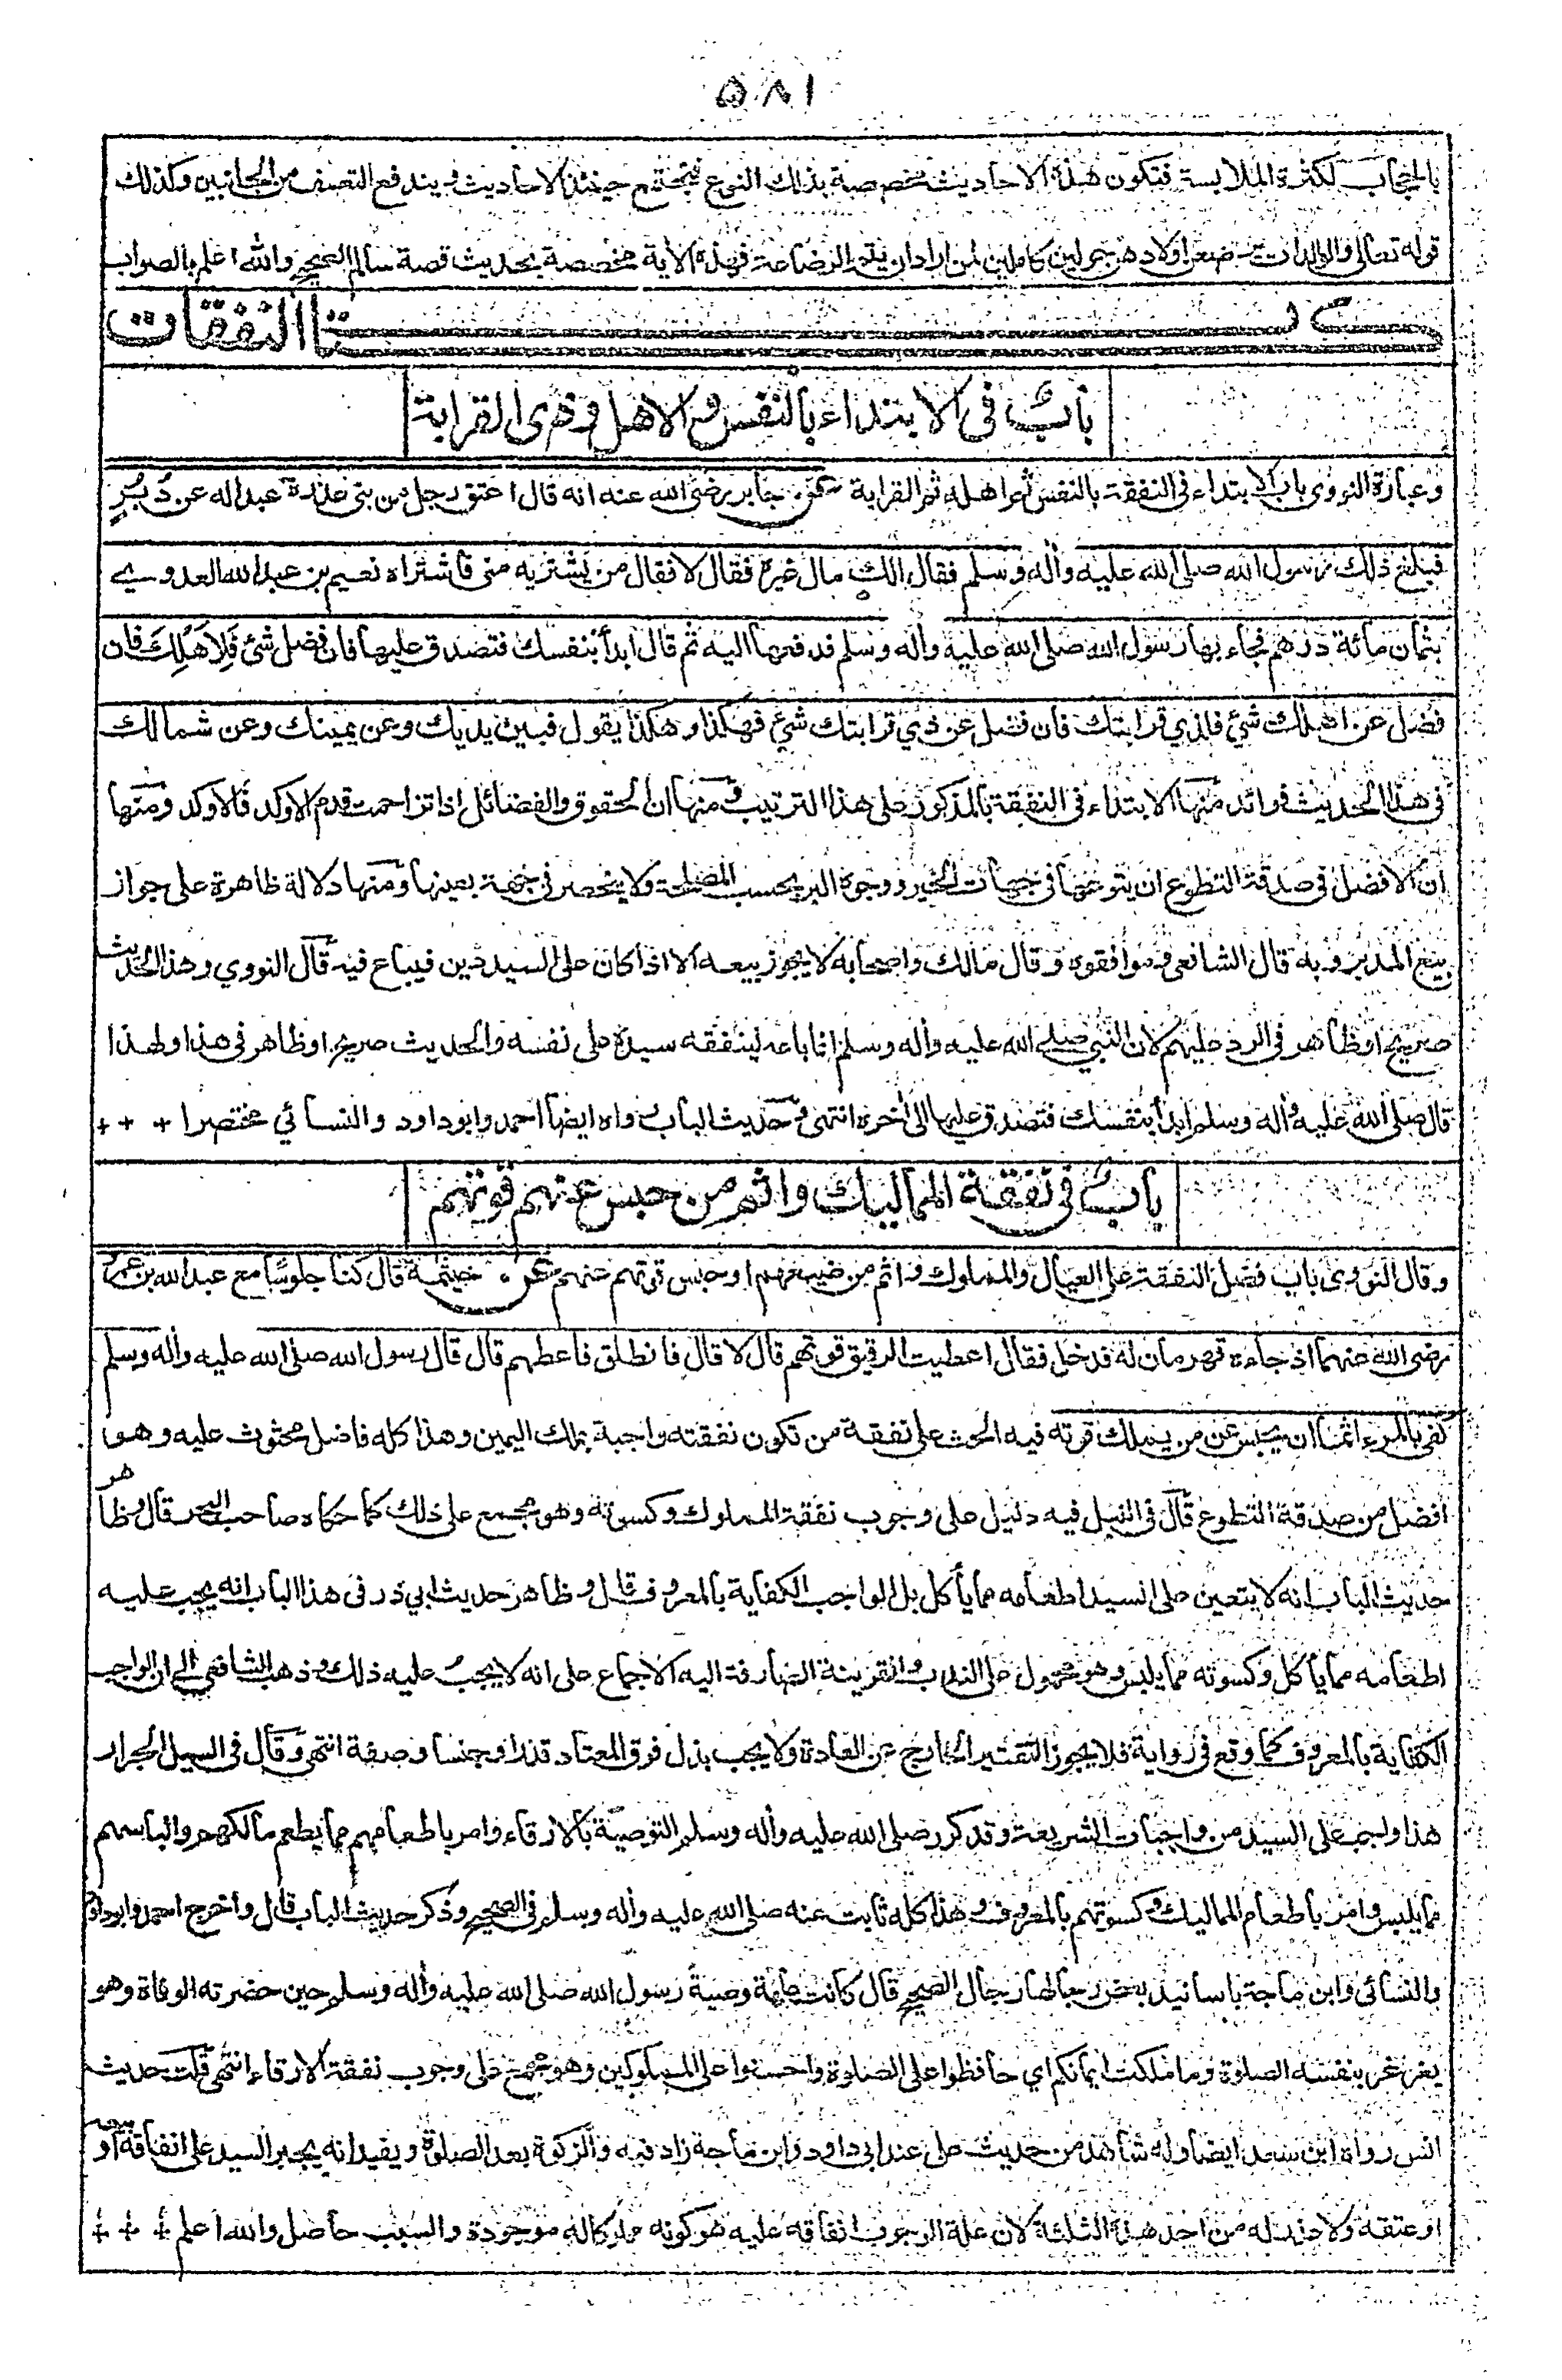 ٥٨١
بالحجاب لكثرة الملابسة فتكون هذه الاحاديث مخصصة بذلك النوع فتجتمع حينئذ الاحاديث ويندفع التعسف من الجانبين وكذلك
قوله تعالى والوالدات يرضعن اولادهن حولين كاملين لمن اراد ان يتم الرضاعة فهذه الأية مخصصة بحديث قصة سالم الصحيح والله اعلم بالصواب
كتاب النفقات
باب في الابتداء بالنفس والاهل وذوى القرابة
وعبارة النووى باب الابتداء فى النفقة بالنفس ثم اهله ثم القرابة عن جابر رضى الله عنه انه قال اعتق رجل من بنى عذرة عبدا له عن دُبُرٍ
فبلغ ذلك رسول الله صلى الله عليه وأله وسلم فقال الك مال غيره فقال لا فقال من يشتريه منى فاشتراه نعيم بن عبد الله العدوي
بثمان مائة درهم فجاء بها رسول الله صلى الله عليه وأله وسلم فدفعها اليه ثم قال ابدأ بنفسك فتصدق عليها فان فضل شئ فلاهلك فان
فضل عن اهلك شئ فلذي قرابتك فان فضل عن ذي قرابتك شئ فهكذا وهكذا يقول فبين يديك وعن يمينك وعن شمالك
فى هذا الحديث فوائد منها الابتداء فى النفقة بالمذكور على هذا الترتيب ومنها ان الحقوق والفضائل اذا تزاحمت قدم الاوكد فالاوكد ومنها
ان الافضل فى صدقة التطوع ان ينوعها فى جهات الخير ووجوه البر بحسب المصلحة ولا ينحصر فى جهة بعينها ومنها دلالة ظاهرة على جواز
بيع المدبر وبه قال الشافعى وموافقوه وقال مالك واصحابه لا يجوز بيعه الا اذا كان على السيد دين فيباع فيه قال النووي وهذا الحديث
صريح او ظاهر فى الرد عليهم لان النبي صلى الله عليه وأله وسلم انما باعه لينفقه سيده على نفسه والحديث صريح او ظاهر فى هذا ولهذا
قال صلى الله عليه وأله وسلم ابدأ بنفسك فتصدق عليها الى أخره انتهى وحديث الباب رواه ايضا احمد وابو داود والنسائي مختصرا + + +
باب فى نفقة المماليك واثم من حبس عنهم قوتهم
وقال النووى باب فضل النفقة على العيال والمملوك واثم من ضيعهم او حبس قوتهم عنهم عن خيثمة قال كنا جلوسًا مع عبد الله بن عمرو
رضى الله عنهما اذ جاءه قهرمان له فدخل فقال اعطيت الرقيق قوتهم قال لا قال فانطلق فاعطهم قال قال رسول الله صلى الله عليه وأله وسلم
كفى بالمرء اثما ان يحبس عن من يملك قوته فيه الحث على نفقة من تكون نفقته واجبة بملك اليمين وهذا كله فاضل محثوث عليه وهو
افضل من صدقة التطوع قال فى النيل فيه دليل على وجوب نفقة المملوك وكسوته وهو مجمع على ذلك كما حكاه صاحب البحر قال وظاهر
حديث الباب انه لا يتعين على السيد اطعامه مما يأكل بل الواجب الكفاية بالمعروف قال وظاهر حديث ابي ذر فى هذا الباب انه يجب عليه
اطعامه مما يأكل وكسوته مما يلبس وهو محمول على الندب والقرينة الصارفة اليه الاجماع على انه لا يجب عليه ذلك وذهب الشافعى الى ان الواجب
الكفاية بالمعروف كما وقع فى رواية فلا يجوز التقتير الخارج عن العادة ولا يجب بذل فوق المعتاد قدرا وجنسا وصفة انتهى وقال فى السيل الجرار
هذا واجب على السيد من واجبات الشريعة وقد كرر صلى الله عليه وأله وسلم التوصية بالارقاء وامر باطعامهم مما يطعم مالكهم والباسهم
مما يلبس وامر باطعام المماليك وكسوتهم بالمعروف وهذا كله ثابت عنه صلى الله عليه وأله وسلم فى الصحيح وذكر حديث الباب قال واخرج احمد وابو داود
والنسائى وابن ماجة باسانيد بعض رجالها رجال الصحيح قال كانت عامة وصية رسول الله صلى الله عليه وأله وسلم حين حضرته الوفاة وهو
يغرغر بنفسه الصلوة وما ملكت ايمانكم اي حافظوا على الصلوة واحسنوا على المملوكين وهو مجمع على وجوب نفقة الارقاء انتهى قلت حديث
انس رواه ابن سعد ايضا وله شاهد من حديث على عند ابى داود وابن ماجة زاد فيه والزكوة بعد الصلوة ويفيد انه يجبر السيد على انفاقه او بيعه
او عتقه ولا عذر له من احد هذه الثلثة لان علة الوجوب انفاقه عليه هو كونه مملوكا له موجودة والسبب حاصل والله اعلم + + +